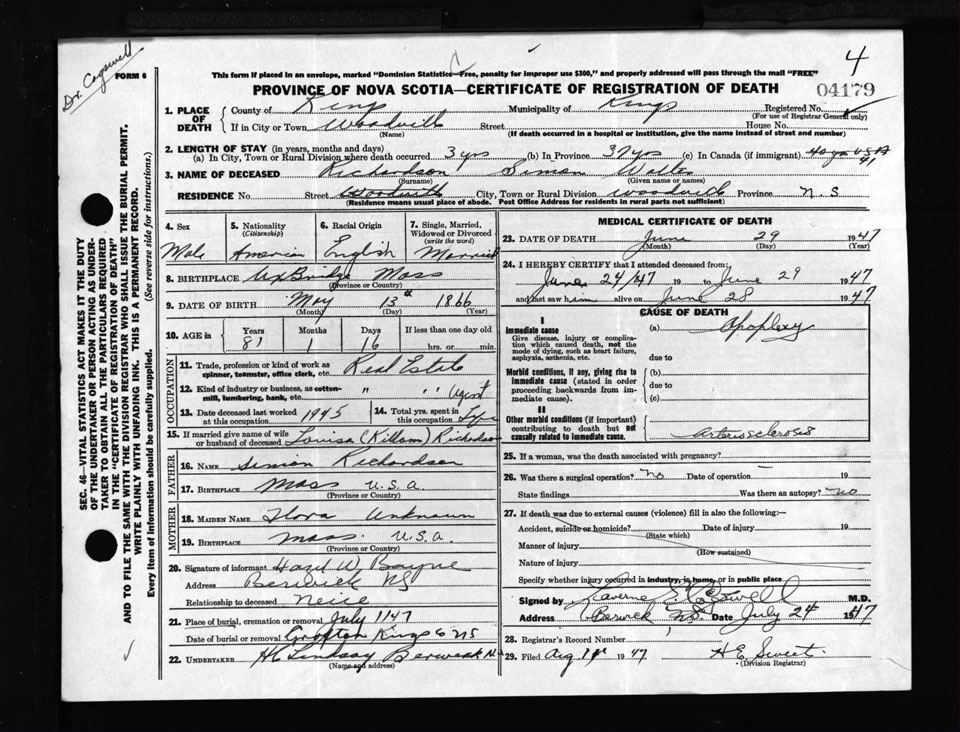 Dr. Cogswell
FORM 6
4
This form if placed in an envelope, marked "Dominion Statistics—Free, penalty for improper use $300," and properly addressed will pass through the mail "FREE"
PROVINCE OF NOVA SCOTIA—CERTIFICATE OF REGISTRATION OF DEATH
04179
1. PLACE OF DEATH
County of Kings Municipality of Kings Registered No.
(For use of Registrar General only)
If in City or Town Woodville Street House No.
(Name) (If death occurred in a hospital or institution, give the name instead of street and number)
2. LENGTH OF STAY (in years, months and days)
(a) In City, Town or Rural Division where death occurred 3 yrs (b) In Province 37 yrs (c) In Canada (if immigrant)
3. NAME OF DECEASED Richardson Simon Walter
(Surname) (Given name or names)
RESIDENCE No. Street Woodville City, Town or Rural Division Woodville Province N.S
(Residence means usual place of abode. Post Office Address for residents in rural parts not sufficient)
4. Sex Male
5. Nationality (Citizenship) American
6. Racial Origin English
7. Single, Married, Widowed or Divorced (write the word) Married
8. BIRTHPLACE Uxbridge Mass
(Province or Country)
9. DATE OF BIRTH May 13th 1866
(Month) (Day) (Year)
10. AGE in Years 81 Months 1 Days 16 If less than one day old
hrs. or min.
OCCUPATION
11. Trade, profession or kind of work as spinner, teamster, office clerk, etc. Real Estate
12. Kind of industry or business, as cotton-mill, lumbering, bank, etc. " " Agent
13. Date deceased last worked at this occupation 1945
14. Total yrs. spent in this occupation Life
15. If married give name of wife or husband of deceased Louisa (Killam) Richardson
FATHER
16. NAME Simon Richardson
17. BIRTHPLACE Mass U.S.A.
(Province or Country)
MOTHER
18. MAIDEN NAME Flora Unknown
19. BIRTHPLACE Mass. U.S.A.
(Province or Country)
20. Signature of informant Hazel W. Bayne
Address Berwick NS
Relationship to deceased Neice
21. Place of burial, cremation or removal July 1 1947
Date of burial or removal Grafton Kings Co NS
22. UNDERTAKER H C Lindsay Berwick N.S
(Name and address)
MEDICAL CERTIFICATE OF DEATH
23. DATE OF DEATH June 29 1947
(Month) (Day) (Year)
24. I HEREBY CERTIFY that I attended deceased from:
June 24/47 19 to June 29 1947
and last saw him alive on June 28 1947
CAUSE OF DEATH
I
Immediate cause
Give disease, injury or complication which caused death, not the mode of dying, such as heart failure, asphyxia, asthenia, etc.
(a) Apoplexy
due to
Morbid conditions, if any, giving rise to immediate cause (stated in order proceeding backwards from immediate cause).
(b)
due to
(c)
II
Other morbid conditions (if important) contributing to death but not causally related to immediate cause.
Arteriosclerosis
25. If a woman, was the death associated with pregnancy?
26. Was there a surgical operation? No Date of operation — 19
State findings Was there an autopsy? No
27. If death was due to external causes (violence) fill in also the following:—
Accident, suicide or homicide? Date of injury 19
(State which)
Manner of injury
(How sustained)
Nature of injury
Specify whether injury occurred in industry, in home, or in public place
Signed by Laverne S Cogswell M.D.
Address Berwick NS. Date July 24 1947
28. Registrar's Record Number
29. Filed Aug 1947 H E Sweet
(Division Registrar)
SEC. 46—VITAL STATISTICS ACT MAKES IT THE DUTY
OF THE UNDERTAKER OR PERSON ACTING AS UNDER-
TAKER TO OBTAIN ALL THE PARTICULARS REQUIRED
IN THE "CERTIFICATE OF REGISTRATION OF DEATH"
AND TO FILE THE SAME WITH THE DIVISION REGISTRAR WHO SHALL ISSUE THE BURIAL PERMIT.
WRITE PLAINLY WITH UNFADING INK. THIS IS A PERMANENT RECORD.
Every item of information should be carefully supplied. (See reverse side for instructions.)